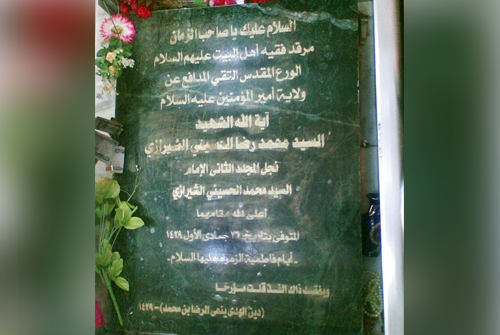 السلام عليك يا صاحب الزمان
مرقد فقيه أهل البيت عليهم السلام
الورع المقدس التقي المدافع عن
ولاية أمير المؤمنين عليه السلام
آية الله الشهيد
السيد محمد رضا الحسيني الشيرازي
نجل المجدد الثاني الإمام
السيد محمد الحسيني الشيرازي
أعلى الله مقامهما
المتوفى بتاريخ ٢٦ جمادى الأول ١٤٢٩
- أيام فاطمية الزهراء عليها السلام -
ذاك قلت مؤرخا
(دين الهدى ينعى الرضا بن محمد) - ١٤٢٩